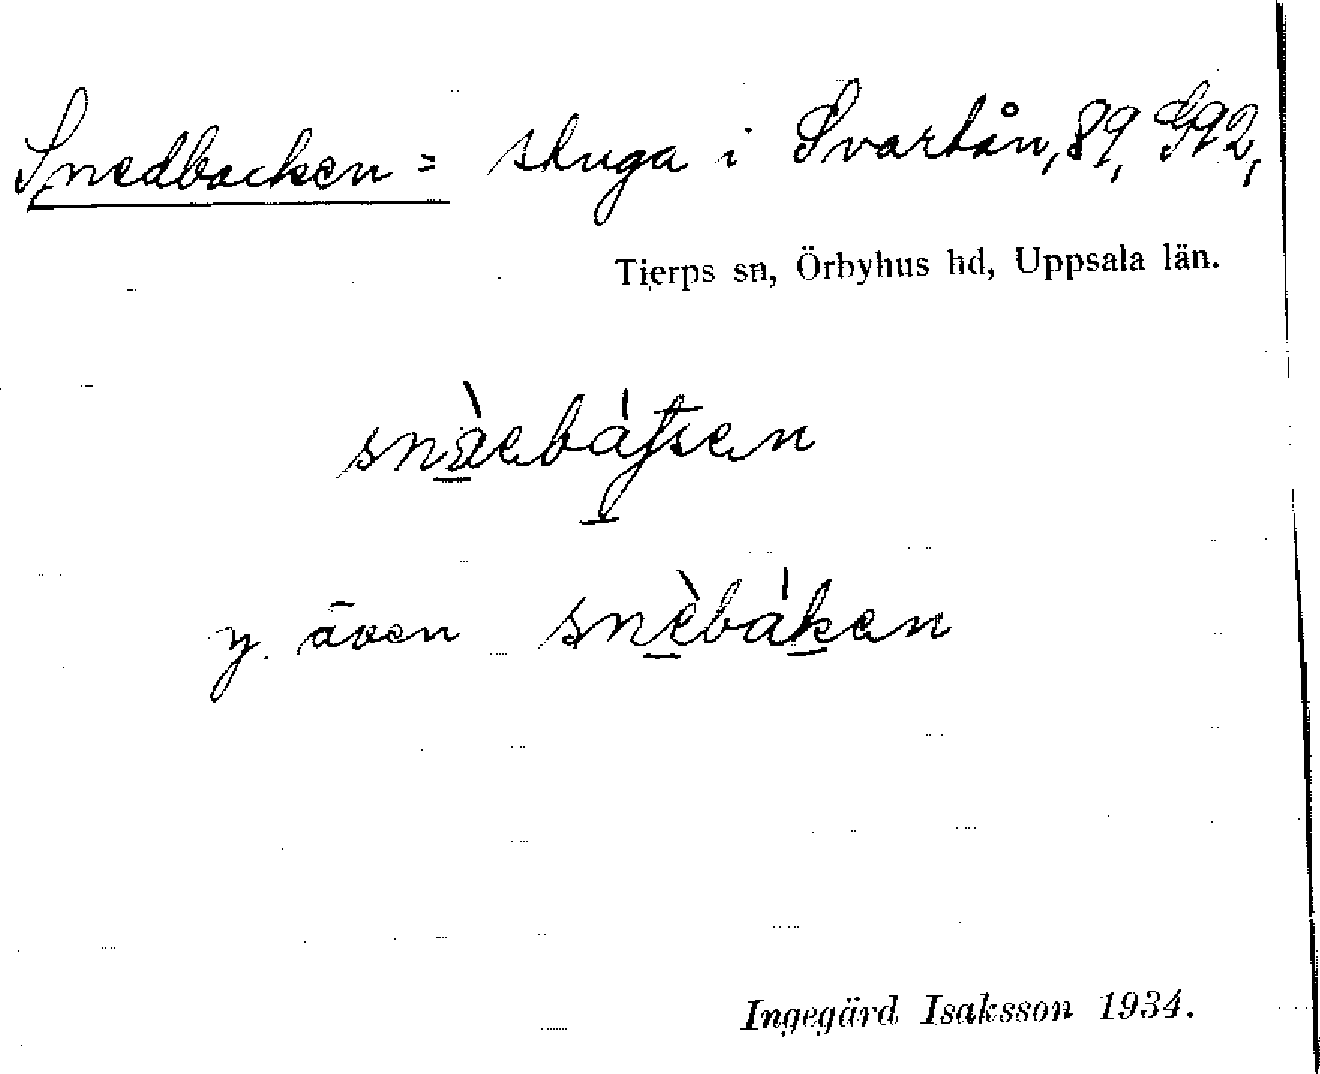 Snedbacken = stuga i Svartån, 89, G92,
Tierps sn, Örbyhus hd, Uppsala län.
y. även snèbàken
Ingegärd Isaksson 1934.